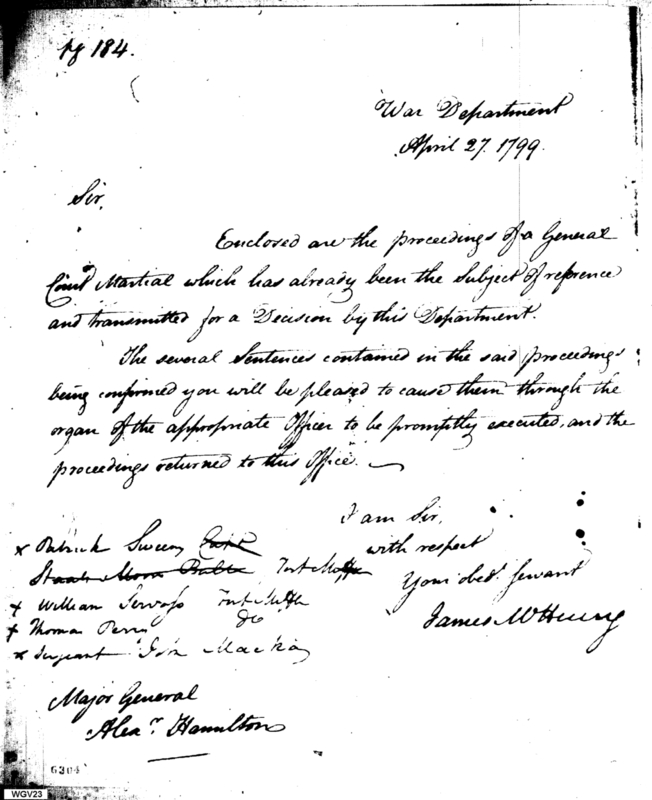 pg 184.
War Department
April 27. 1799.
Sir,
Enclosed are the proceedings of a General
Court Martial which has already been the Subject of reference
and transmitted for a Decision by this Department.
The several Sentences contained in the said proceedings
being confirmed you will be pleased to cause them through the
organ of the appropriate Officer to be promptly executed, and the
proceedings returned to this Office.
I am Sir,
with respect
Your obedt. Servant
James McHenry
x Patrick Sweeny
x William
x Thomas Perry do
x Sergeant John Mackay
Major General
Alexr. Hamilton
6304
WGV23